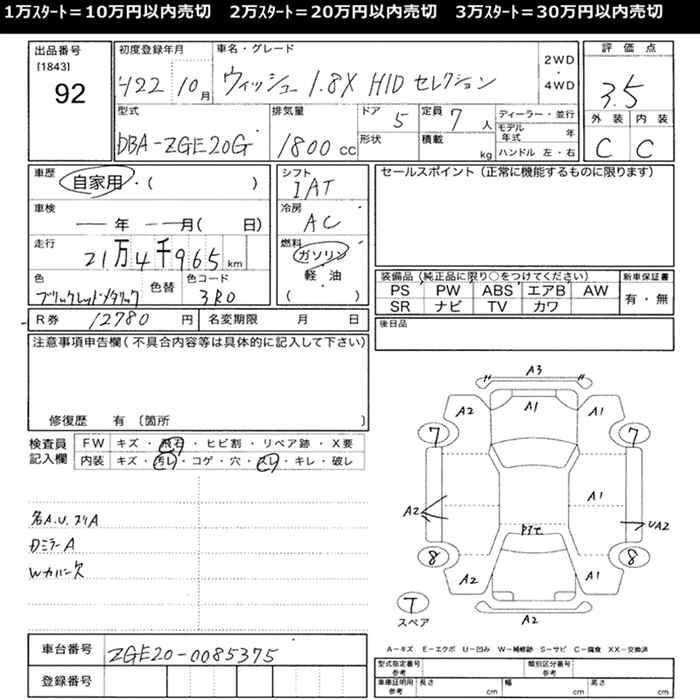 1万ｽﾀｰﾄ＝10万円以内売切　2万ｽﾀｰﾄ＝20万円以内売切　3万ｽﾀｰﾄ＝30万円以内売切
出品番号
[1843]
92
初度登録年月
H22 10月
車名・グレード
ウィッシュ 1.8X HIDセレクション
2WD
・
4WD
評価点
3.5
型式
DBA-ZGE20G
排気量
1800 cc
ドア
5
形状
定員
7 人
積載
kg
ディーラー・並行
モデル年式 年
ハンドル 左・右
外装 内装
C C
車歴
自家用・( )
車検
― 年 ― 月( 日)
走行
21万4千965 km
色
ブリックレッドメタリック
色替
色コード
3R0
シフト
IAT
冷房
AC
燃料
ガソリン
・
軽・油
( )
セールスポイント（正常に機能するものに限ります）
装備品（純正品に限り○をつけてください）
PS PW ABS エアB AW
SR ナビ TV カワ
新車保証書
有・無
R券 12780 円
名変期限 月 日
後日品
注意事項申告欄(不具合内容等は具体的に記入して下さい)
修復歴 有〔箇所 〕
検査員
記入欄
FW キズ・飛石・ヒビ割・リペア跡・X要
内装 キズ・汚レ・コゲ・穴・スレ・キレ・破レ
各A.U.スリA
DミラーA
Wカバー欠
A3
A2 A1 A1
7 7
A1
A2
UA2
8 8
A2 A1
T
スペア
A2
A－キズ E－エクボ U－凹み W－補修跡 S－サビ C－腐食 XX－交換済
車台番号
ZGE20-0085375
登録番号
型式指定番号
参考
類別区分番号
参考
車庫証明用
参考
長さ cm
幅 cm
高さ cm